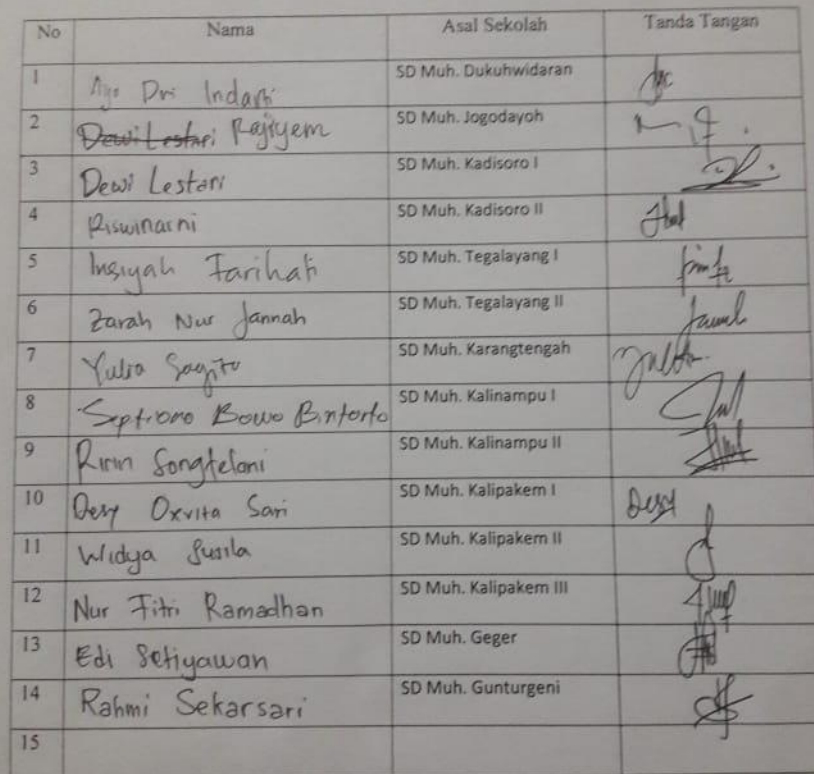 No Nama Asal Sekolah Tanda Tangan
1 Dwi Indarti SD Muh. Dukuhwidaran
2 Dewi Lestari Rajiyem SD Muh. Jogodayoh
3 Dewi Lestari SD Muh. Kadisoro I
4 Riswinarni SD Muh. Kadisoro II
5 Insiyah Farihati SD Muh. Tegalayang I
6 Zarah Nur Jannah SD Muh. Tegalayang II
7 Yulia Sagita SD Muh. Karangtengah
8 Septiono Bowo Bintorto SD Muh. Kalinampu I
9 Ririn Songtelani SD Muh. Kalinampu II
10 Desy Oxvita Sari SD Muh. Kalipakem I Desy
11 Widya Susila SD Muh. Kalipakem II
12 Nur Fitri Ramadhan SD Muh. Kalipakem III
13 Edi Setiyawan SD Muh. Geger
14 Rahmi Sekarsari SD Muh. Gunturgeni
15